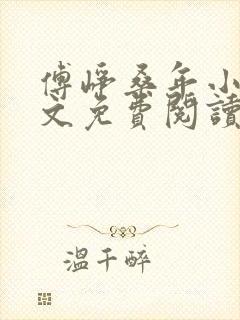 傅崢桑年小
文免費閱讀
溫千醉